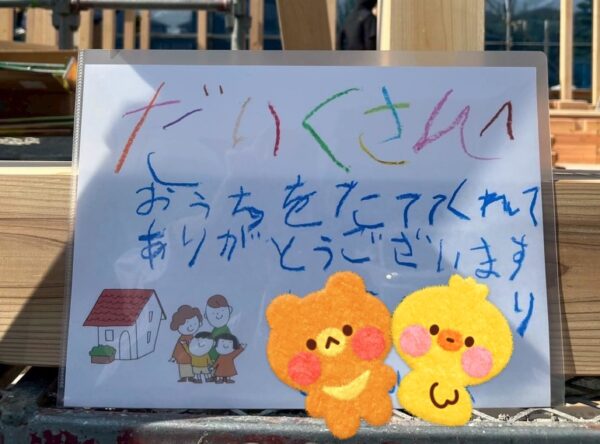 だいくさんへ
おうちをたててくれて
ありがとうございます
り